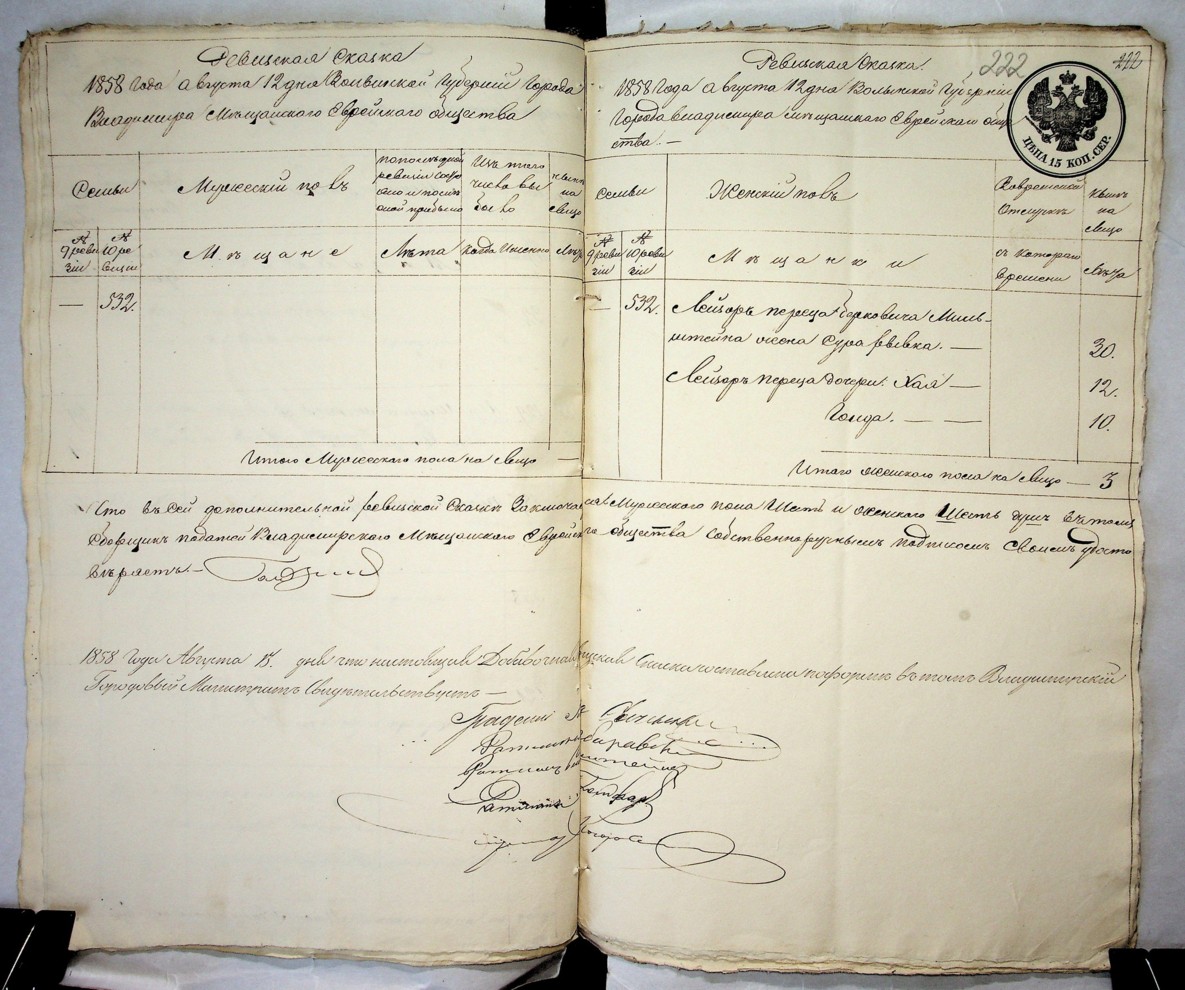 Ревизская Сказка
1858 Года Августа 12 дня Волынской Губернии Города
Владимира Мѣщанского Еврейского общества
Семьи
Мужеский полъ
по последней ревизии состояло и после оной прибыло
Изъ того числа выбыло
ныне на лицо
№ 9 ревизіи
№ 10 ревизіи
Мѣщане
Лѣта
когда Именно
Лѣта
— 532.
Итого Мужеского пола на Лицо —
Ревизская Сказка.
222
222
1858 Года Августа 12 дня Волынской Губерніи
Города Владимира мѣщанского Еврейскаго обще
ства. —
ЦѢНА 15 КОП. СЕР.
Семьи
Женскій полъ
Во временной Отлучкѣ
Ныне на Лицо
№ 9 ревизіи
№ 10 ревизіи
Мѣщанки
съ котораго времени
Лѣта
— 532. Лейзоръ переца Берковича Миль-
штейна жена Сура Рывка. — 30.
Лейзоръ переца дочери. Хая — 12.
Голда. — — 10.
Итаго женского пола на Лицо — 3
Что въ сей дополнительной ревизской Сказкѣ Заключается Мужеского пола Шесть и женского Шесть душъ въ томъ
Сборщикъ податей Владимирского Мѣщанского Еврейского общества Собственноручнымъ подписомъ Своимъ удосто
вѣряетъ. —
1858 Года Августа дня что настоящая Добавочная ревизская Сказка составлена по формѣ въ томъ Владимирскій
Городовый Магистратъ Свидѣтельствуетъ —
Ратманъ
Ратманъ
Ратманъ